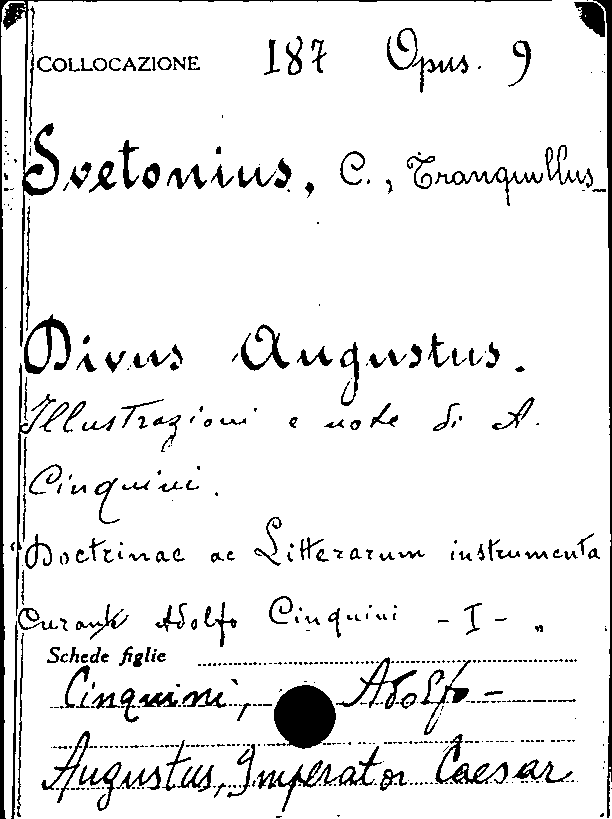 COLLOCAZIONE 187 Opus. 9
Svetonius, C., Tranquillus
Divus Augustus.
Illustrazioni e note di A.
Cinquini.
Doctrinae ac Litterarum instrumenta
Curante Adolfo Cinquini - I - „
Schede figlie
Cinquini, Adolfo -
Augustus, Imperator Caesar